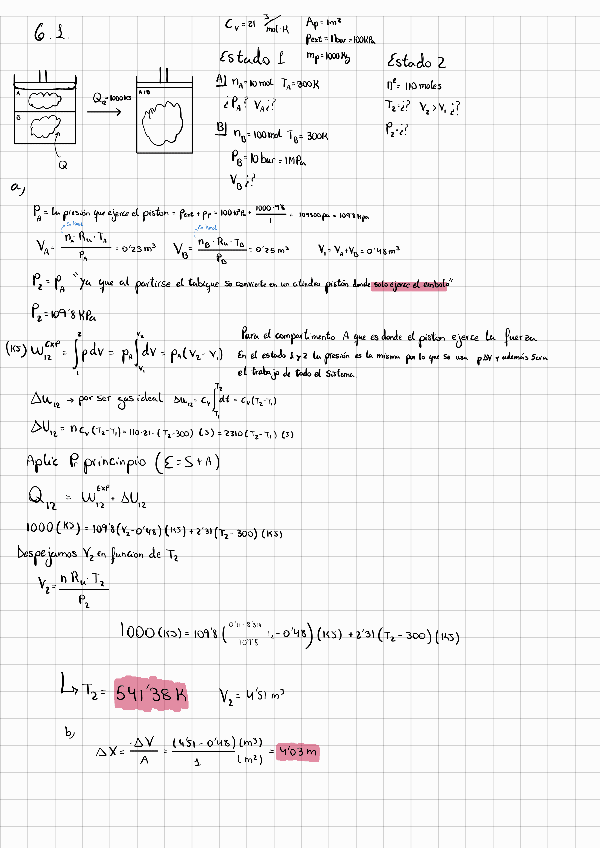 6.1.
C_v = 21 J/mol·K   A_p = 1m²
P_ext = 1bar = 100KPa
m_p = 1000Kg
Estado 1   Estado 2
A] n_A = 10 mol   T_A = 300K   n^e = 110 moles
¿P_A? V_A ¿?   T_2 ¿?   V_2 > V_1 ¿?
P_2 ¿?
B] n_B = 100 mol   T_B = 300K
P_B = 10 bar = 1MPa
V_B ¿?
A
B
Q_12 = 1000KJ
A+B
Q
a)
P_A = la presión que ejerce el piston = P_ext + P_P = 100·10³Pa + 1000·9'8/1 = 109800 Pa = 109'8 Kpa
V_A = n_A·R_u·T_A/P_A = 0'23 m³   V_B = n_B·R_u·T_B/P_B = 0'25 m³   V_1 = V_A + V_B = 0'48 m³
P_2 = P_A "Ya que al partirse el tabique se convierte en un cilindro pistón donde solo ejerce el embolo"
P_2 = 109'8 KPa
(KJ) W_12^EXP = ∫_1^2 p dV = P_A ∫_V1^V2 dV = P_A (V_2 - V_1)
Para el compartimento A que es donde el piston ejerce la fuerza
En el estado 1 y 2 la presión es la misma por lo que se usa pΔV y además sería
el trabajo de todo el sistema
Δu_12 → por ser gas ideal Δu_12 = C_v ∫_T1^T2 dt = C_v (T_2 - T_1)
ΔU_12 = n C_v (T_2 - T_1) = 110·21·(T_2 - 300) (J) = 2310 (T_2 - T_1) (J)
Aplic Pr princinpio (E = S + A)
Q_12 = W_12^EXP + ΔU_12
1000 (KJ) = 109'8 (V_2 - 0'48) (KJ) + 2'31 (T_2 - 300) (KJ)
Despejamos V_2 en funcion de T_2
V_2 = n R_u·T_2/P_2
↳ T_2 = 541'38 K   V_2 = 4'51 m³
b)
ΔX = ΔV/A = (4'51 - 0'48) (m³)/1 (m²) = 4'03 m